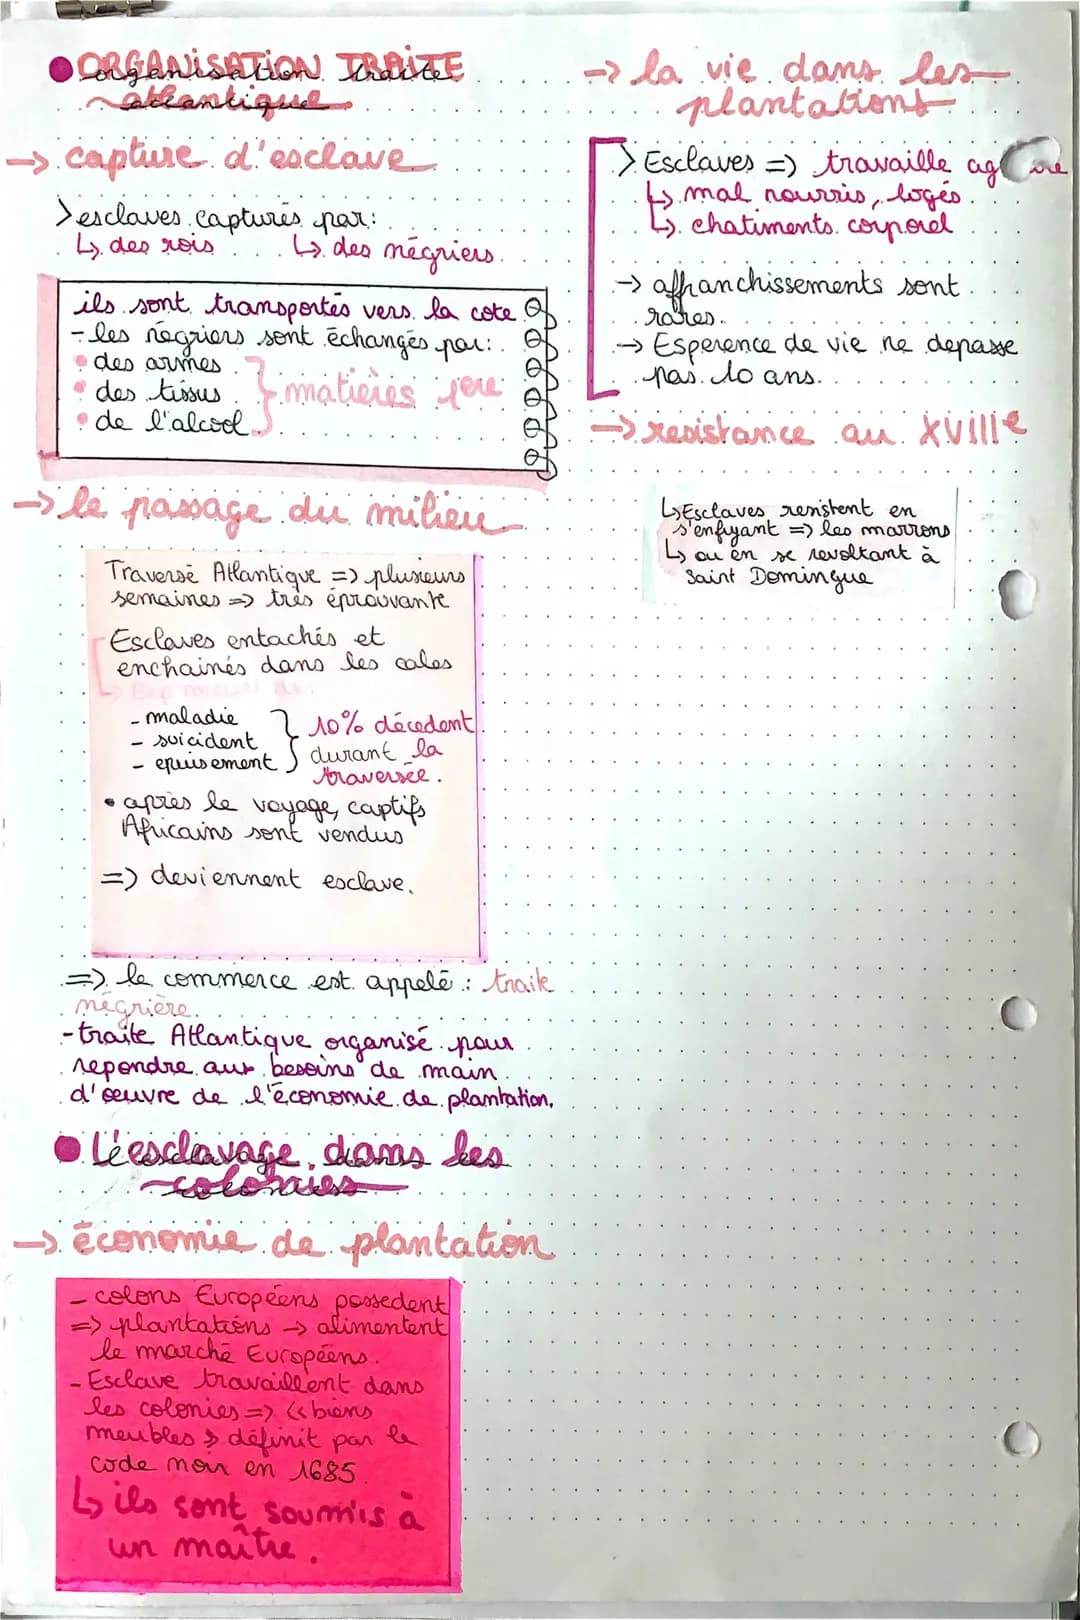 ORGANISATION TRAITE
organisation traite
atlantique
-> capture d'esclave
> esclaves capturés par:
↳ des rois ↳ des négriers.
ils sont transportés vers la cote
- les négriers sont échangés par:
• des armes
• des tissus } matières 1ere
• de l'alcool
-> le passage du milieu
Traversé Atlantique => plusieurs
semaines => très éprouvante
Esclaves entachés et
enchainés dans les cales
- maladie
- suicident
- épuisement
} 10% décedent
durant la
traversée.
• après le voyage, captifs
Africains sont vendus
=> deviennent esclave.
=> le commerce est appelé : traite
négrière.
- traite Atlantique organisé pour
repondre aux besoins de main
d'œuvre de l'économie de plantation.
• L'esclavage dans les
colonies
-> économie de plantation
- colons Européens possedent
=> plantations -> alimentent
le marché Européens.
- Esclave travaillent dans
les colonies => « biens
meubles » définit par le
code noir en 1685.
↳ ils sont soumis à
un maître.
-> la vie dans les
plantations
> Esclaves => travaille
↳ mal nourris, logés.
↳ chatiments corporel
-> affranchissements sont
rares.
-> Esperence de vie ne depasse
pas 10 ans.
-> resistance au XVIIIe
↳ Esclaves resistent en
s'enfuyant => les marrons
↳ ou en se revoltant à
Saint Domingue